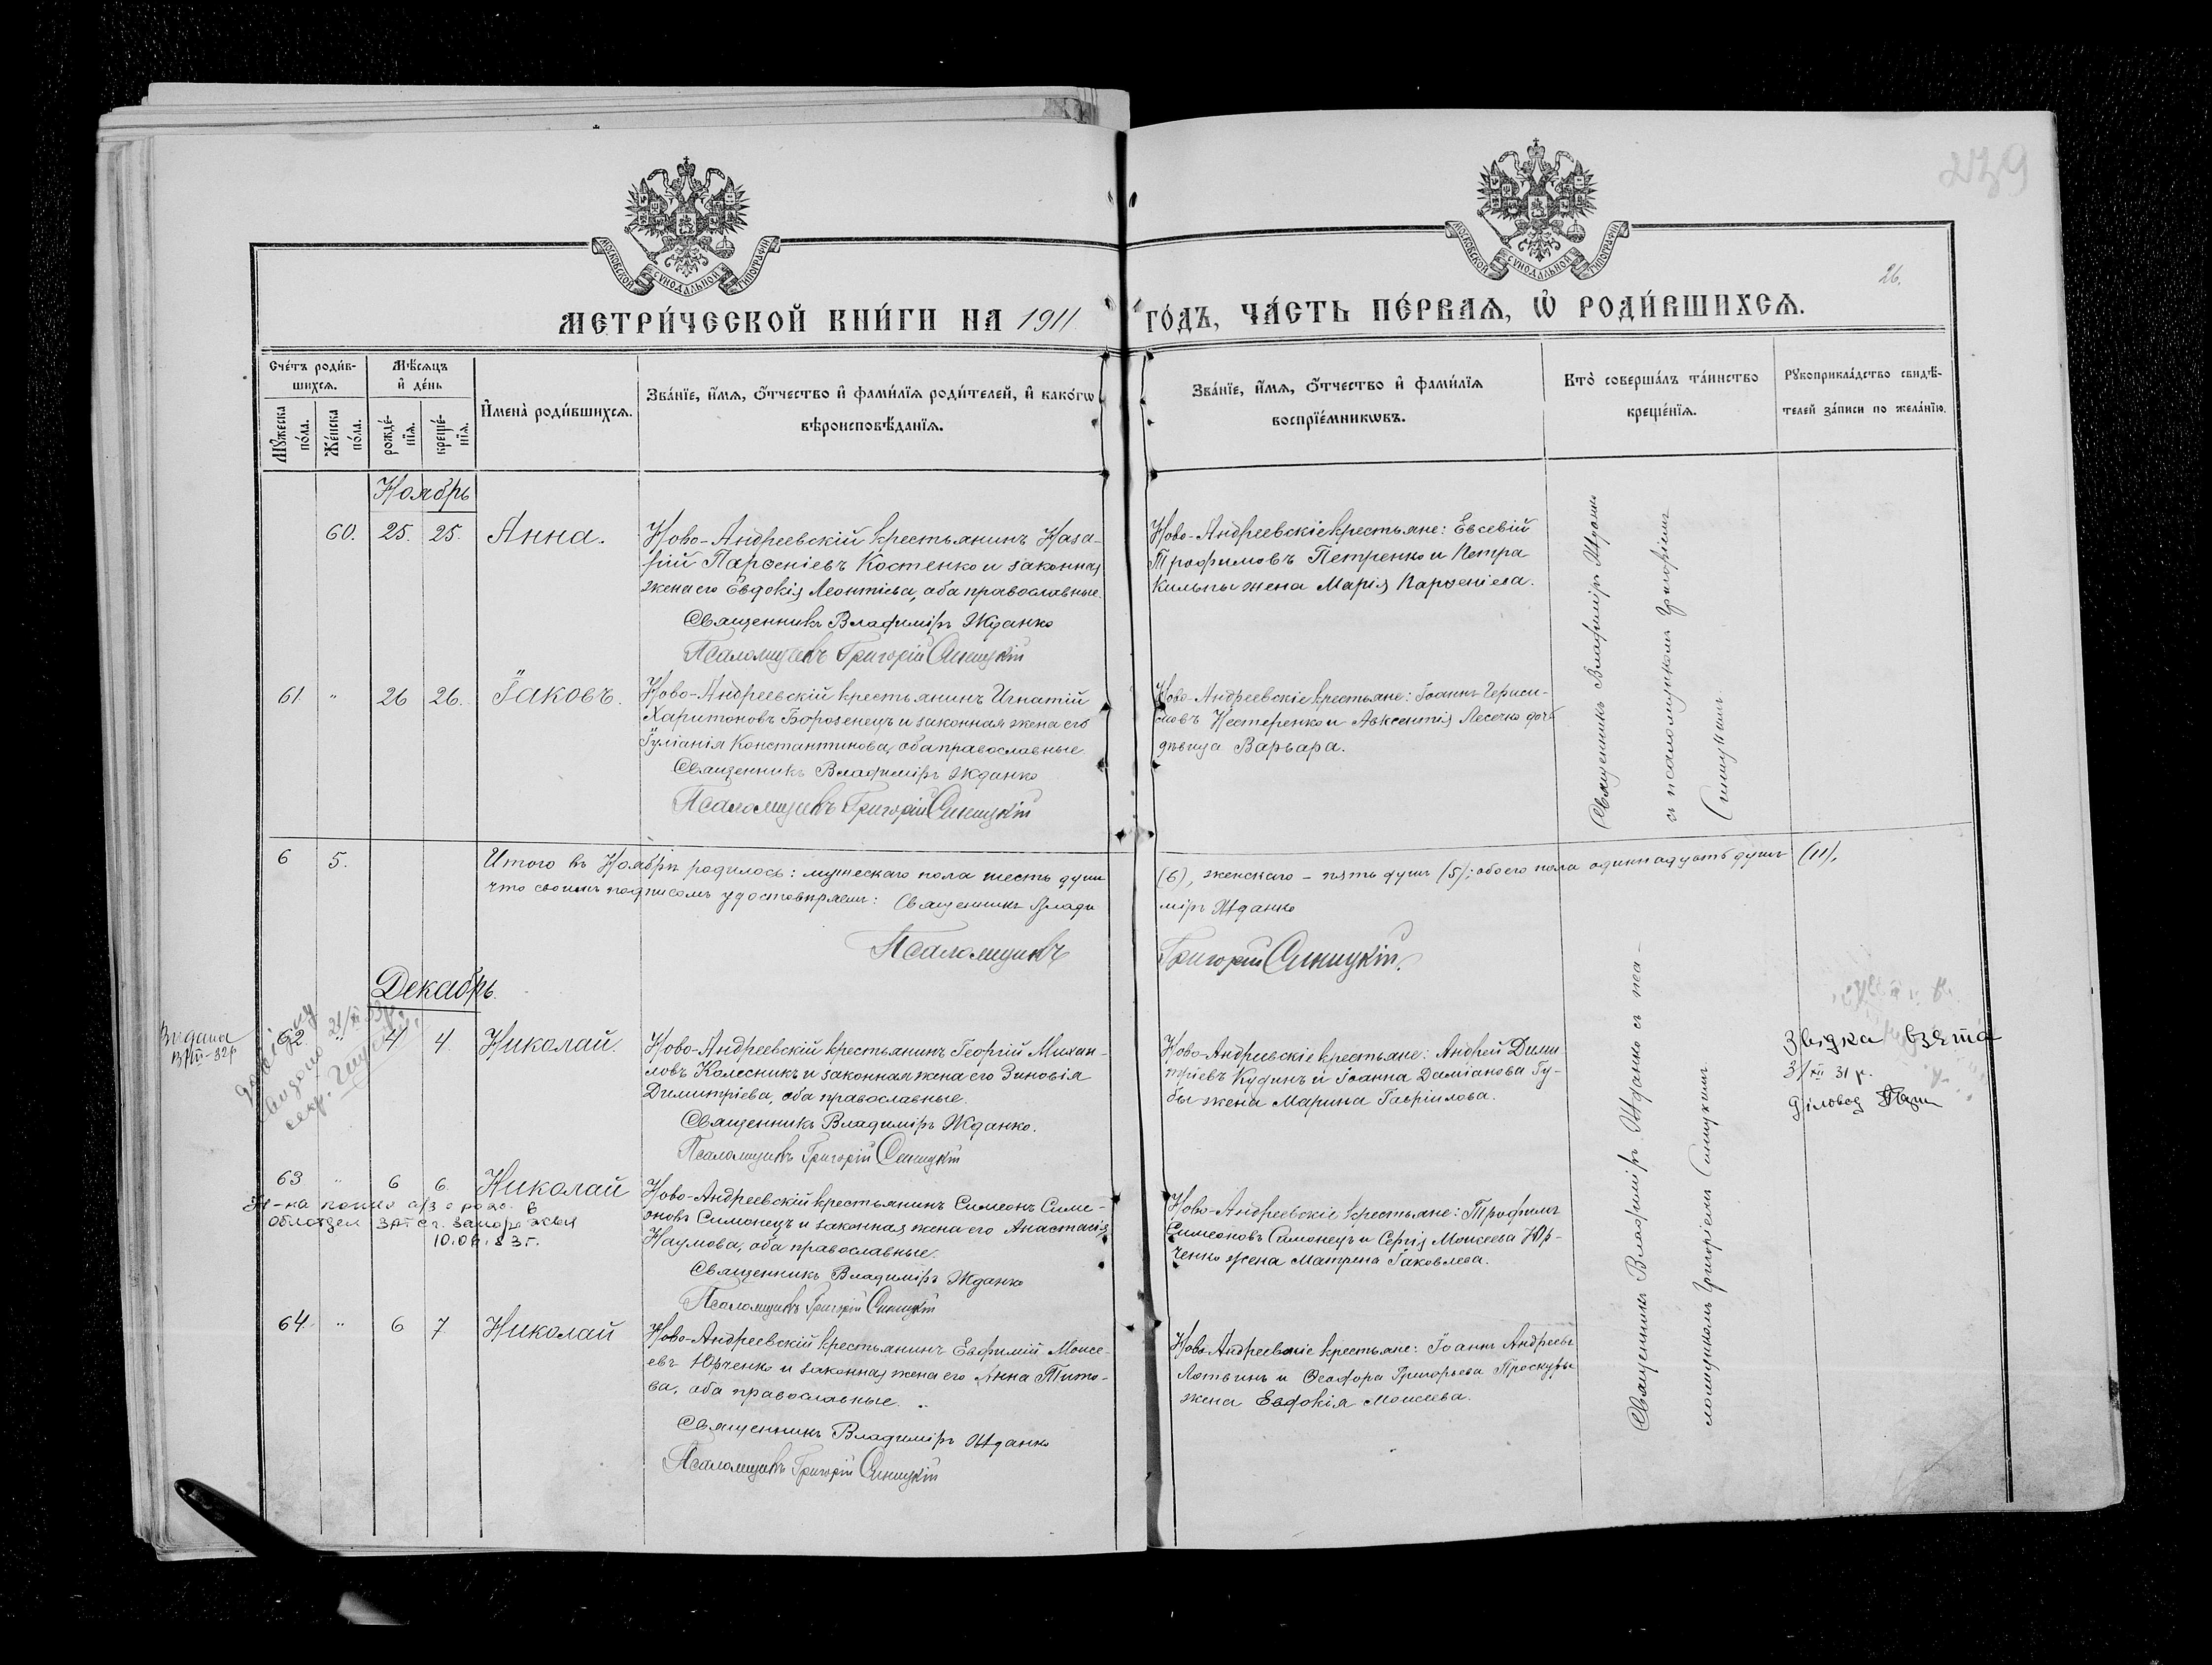 239
26.
МОСКОВСКОЙ СѴНОДАЛЬНОЙ ТИПОГРАФІИ
МОСКОВСКОЙ СѴНОДАЛЬНОЙ ТИПОГРАФІИ
МЕТРИ́ЧЕСКОЙ КНИ́ГИ НА 1911 ГО́ДЪ, ЧА́СТЬ ПЕ́РВАЯ, Ѡ҆ РОДИ́ВШИХСЯ.
Сче́тъ роди́в-
шихся.
Мѣ́сяцъ
и҆ де́нь
Му́жеска по́ла.
Же́нска по́ла.
рожде́-
нїя.
креще́-
нїя.
И҆мена̀ роди́вшихся.
Зва́нїе, и҆́мя, ѻ҆́тчество и҆ фами́лїя роди́телей, и҆ како́гѡ
вѣроисповѣ́данїя.
Зва́нїе, и҆́мя, ѻ҆́тчество и҆ фами́лїя
воспрїе́мникѡвъ.
Кто̀ соверша́лъ та́инство
креще́нїя.
Рукоприкла́дство свидѣ́-
телей за́писи по жела́нїю.
Ноябрь
60. 25. 25. Анна.
Ново-Андреевскій крестьянинъ Наза-
рій Парѳеніевъ Костенко и законная
жена его Евдокія Леонтіева, оба православные.
Священникъ Владиміръ Жданко
Псаломщикъ Григорій Синицкій
Ново-Андреевскіе крестьяне: Евсевій
Трофимовъ Петренко и Петра
жена Марія Парѳеніева.
Священникъ Владиміръ Жданко
съ псаломщикомъ Григоріемъ
Синицкимъ
61 " 26 26. Іаковъ.
Ново-Андреевскій крестьянинъ Игнатій
Харитоновъ Борозенецъ и законная жена его
Іуліанія Константинова, оба православные
Священникъ Владиміръ Жданко
Псаломщикъ Григорій Синицкій
Ново-Андреевскіе крестьяне: Іоаннъ
Нестеренко и Авксентія Лесечко дочь
дѣвица Варвара.
6 5.
Итого въ Ноябрѣ родилось: мужескаго пола шесть душъ (6), женскаго – пять душъ (5); обоего пола одиннадцать душъ (11),
что своимъ подписомъ удостовѣряемъ: Священникъ Влади
міръ Жданко
Псаломщикъ Григорій Синицкій.
Декабрь.
Видана
62. " 4 4. Николай.
Ново-Андреевскій крестьянинъ Георгій Михаи-
ловъ Колесникъ и законная жена его Зиновія
Димитріева, оба православные.
Священникъ Владиміръ Жданко.
Псаломщикъ Григорій Синицкій
Ново-Андреевскіе крестьяне: Андрей Дими
тріевъ Кудинъ и Іоанна Даміанова Гу-
бы жена Марина Гавріилова.
Священникъ Владиміръ Жданко съ пса-
ломщикомъ Григоріемъ Синицкимъ
Звідка взята
31/XII 31 р.
Діловод
63 " 6 6. Николай
10.06.83г.
Ново-Андреевскій крестьянинъ Симеонъ Симе-
оновъ Симонецъ и законная жена его Анастасія
Наумова, оба православные.
Священникъ Владиміръ Жданко
Псаломщикъ Григорій Синицкій
Ново-Андреевскіе крестьяне: Трофимъ
Симеоновъ Симонецъ и Сергія Моисеева Юр-
ченко жена Матрена Іаковлева.
64. " 6 7 Николай
Ново-Андреевскій крестьянинъ Евфимій Моисе-
евъ Юрченко и законная жена его Анна Тито-
ва, оба православные.
Священникъ Владиміръ Жданко
Псаломщикъ Григорій Синицкій
Ново-Андреевскіе крестьяне: Іоаннъ Андреевъ
Литвинъ и Ѳеодора Григорьева Проскуры
жена Евдокія Моисеева.